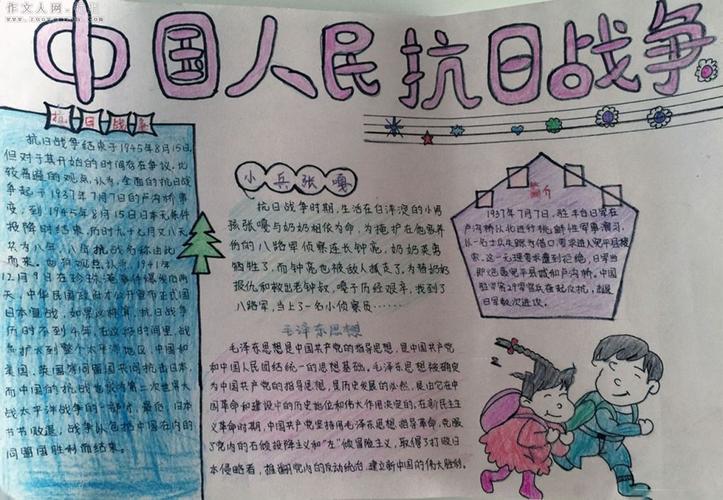 作文人网
中国人民抗日战争
抗日战争
抗日战争结束于1945年8月15日,
但对于其开始的时间存在争议,比
较普遍的观点认为,全面的抗日战
争起于1937年7月7日的卢沟桥事
变,到1945年8月15日日本无条件
投降时结束,历时九十七月又八天
共为八年,八年抗战名称由此
而来。也有观点认为,1941年
12月9日在珍珠港事件爆发后两
天,中华民国政府才公开宣布正式国
日本宣战,如果这样算,抗日战争
历时不到4年,在这段时间里,战
争扩大到整个太平洋地区,中国和
美国、英国等同盟国共同抗击日本,
而中国的抗战也成为第二次世界大
战太平洋战争的一部分。最后,日本
节节败退,战争以包括中国在内的
同盟国胜利而结束。
小兵张嘎
抗日战争时期,生活在白洋淀的小男
孩张嘎与奶奶相依为命,为掩护在他家养
伤的八路军侦察连长钟亮,奶奶英勇
牺牲了,而钟亮也被敌人抓走了,为替奶奶
报仇和救出老钟叔,嘎子历经艰辛,找到了
八路军,当上了一名小侦察员……
毛泽东思想
毛泽东思想是中国共产党的指导思想,是中国共产党
和中国人民团结统一的思想基础,毛泽东思想被确定
为中国共产党的指导思想,是历史发展的必然,是由它在中
国革命和建设中的历史地位和伟大作用决定的,在新民主主
义革命时期,中国共产党坚持用毛泽东思想指导革命,克服
了党内的右倾投降主义和“左”倾冒险主义,取得了打败日
本侵略者,推翻党内的反动统治,建立新中国的伟大胜利。
简介
1937年7月7日,驻丰台日军在
卢沟桥以北进行挑衅性军事演习,
以一名士兵失踪为借口,要求进入宛平县搜
索,这一无理要求遭到拒绝,日军当
即炮轰宛平县城和卢沟桥。中国
驻守第29军官兵奋起抗击,击退
日军数次进攻。